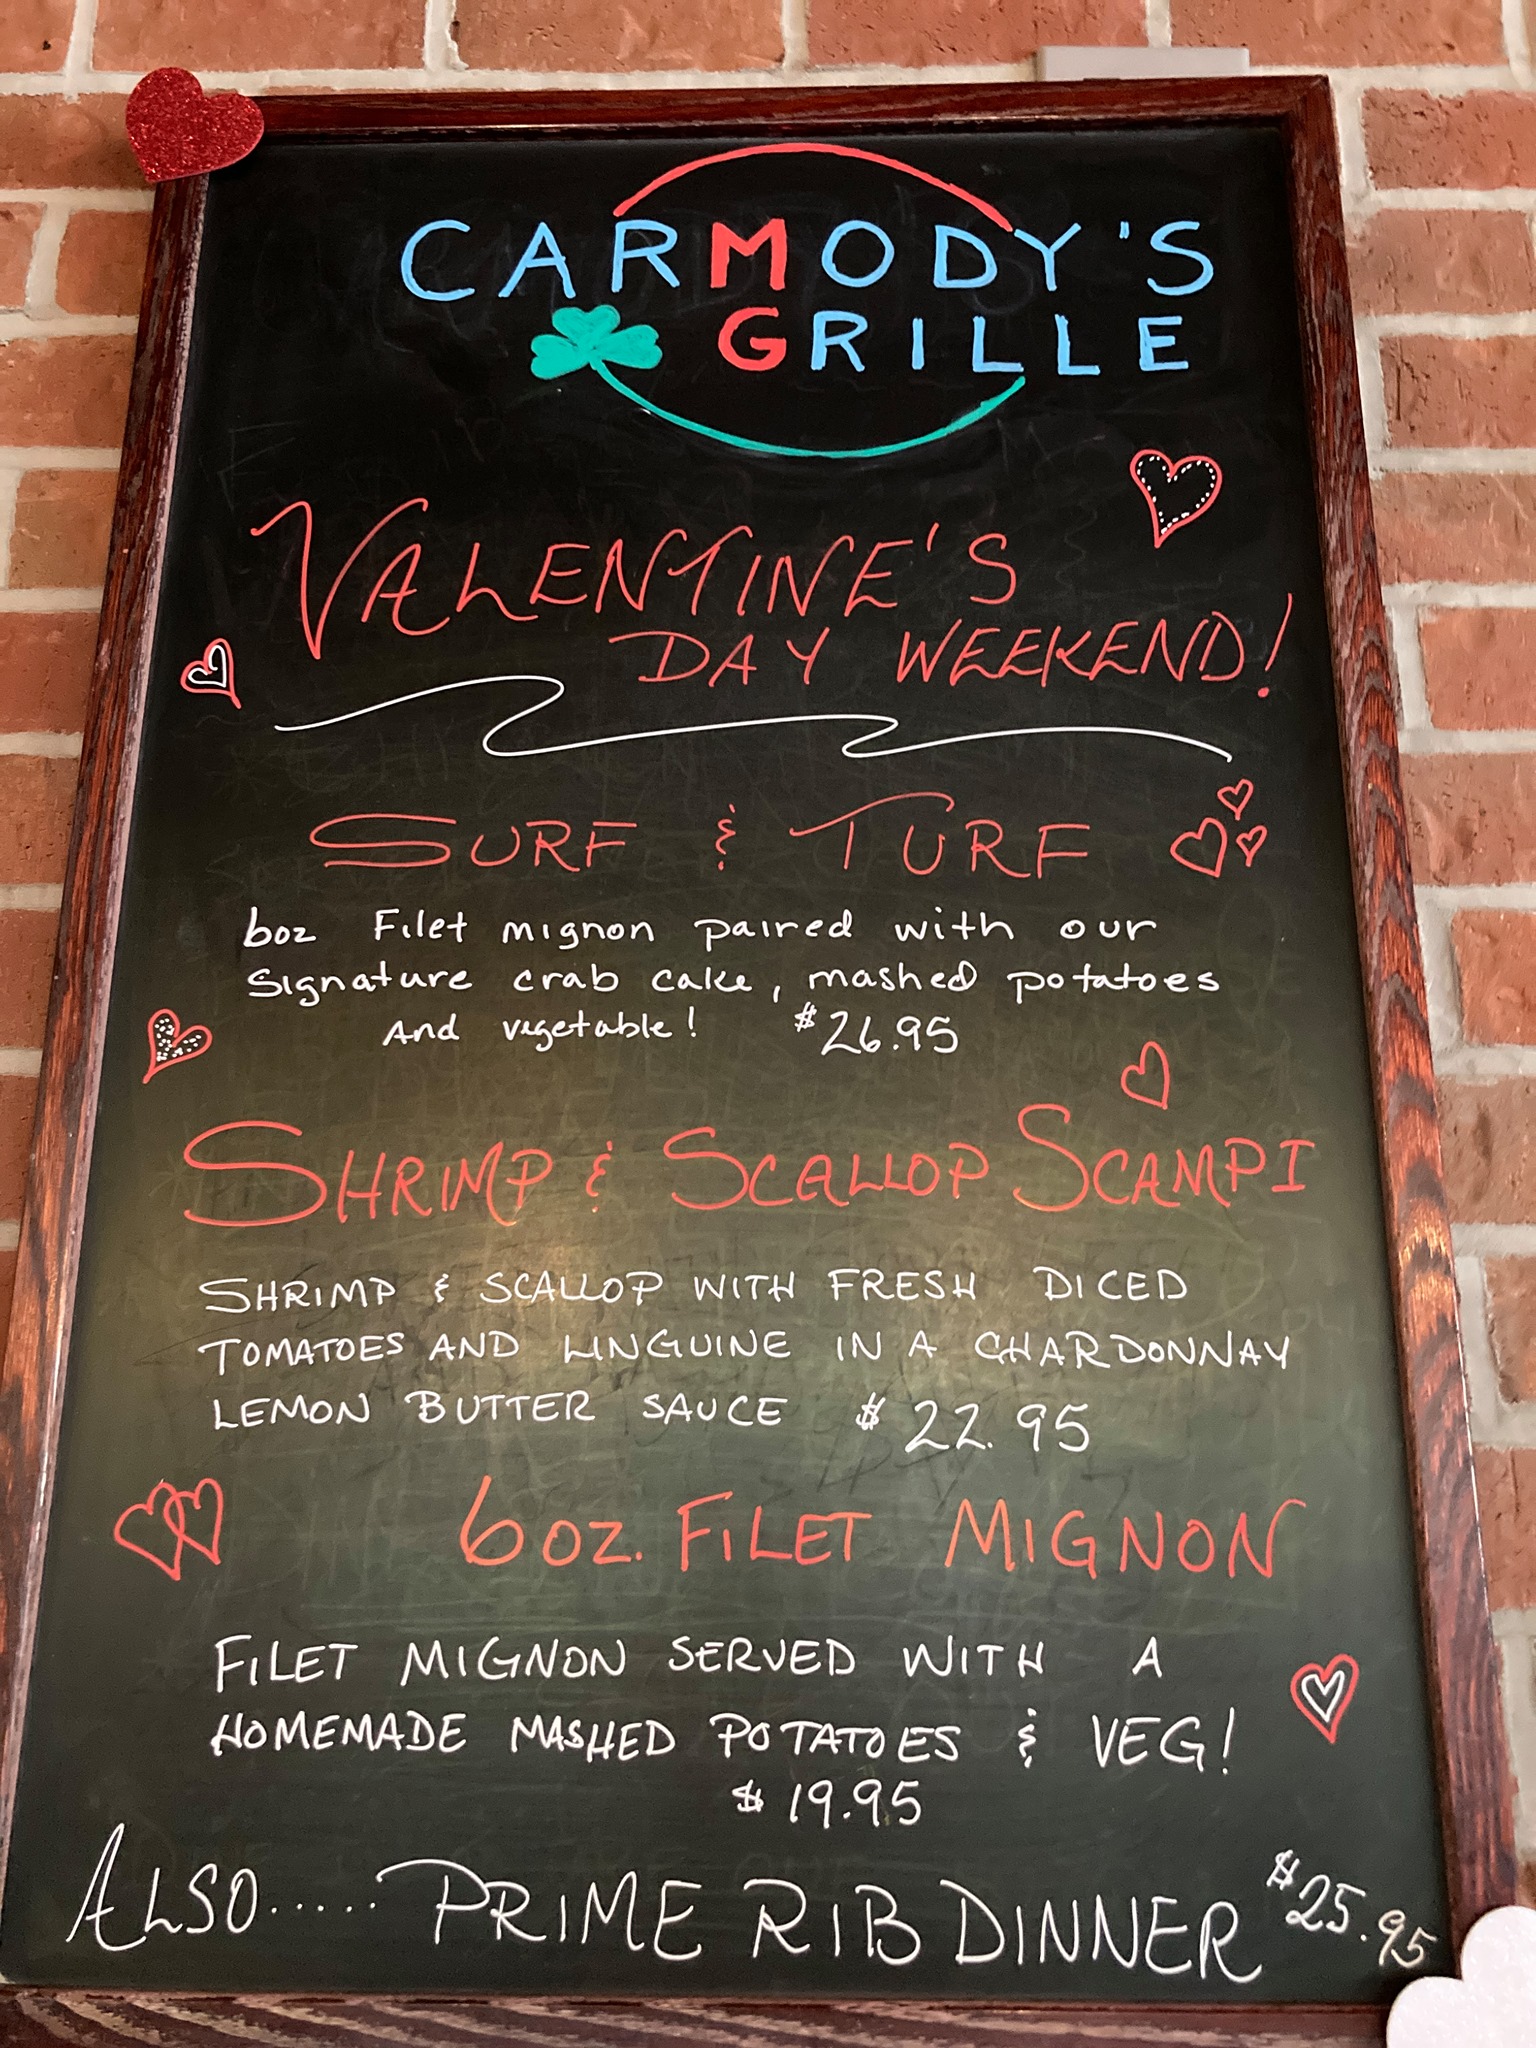 CARMODY'S
GRILLE
VALENTINE'S
DAY WEEKEND!
SURF & TURF
6oz Filet mignon paired with our
signature crab cake, mashed potatoes
And vegetable! $26.95
SHRIMP & SCALLOP SCAMPI
SHRIMP & SCALLOP WITH FRESH DICED
TOMATOES AND LINGUINE IN A CHARDONNAY
LEMON BUTTER SAUCE $22.95
6oz. FILET MIGNON
FILET MIGNON SERVED WITH A
HOMEMADE MASHED POTATOES & VEG!
$19.95
ALSO..... PRIME RIB DINNER $25.95